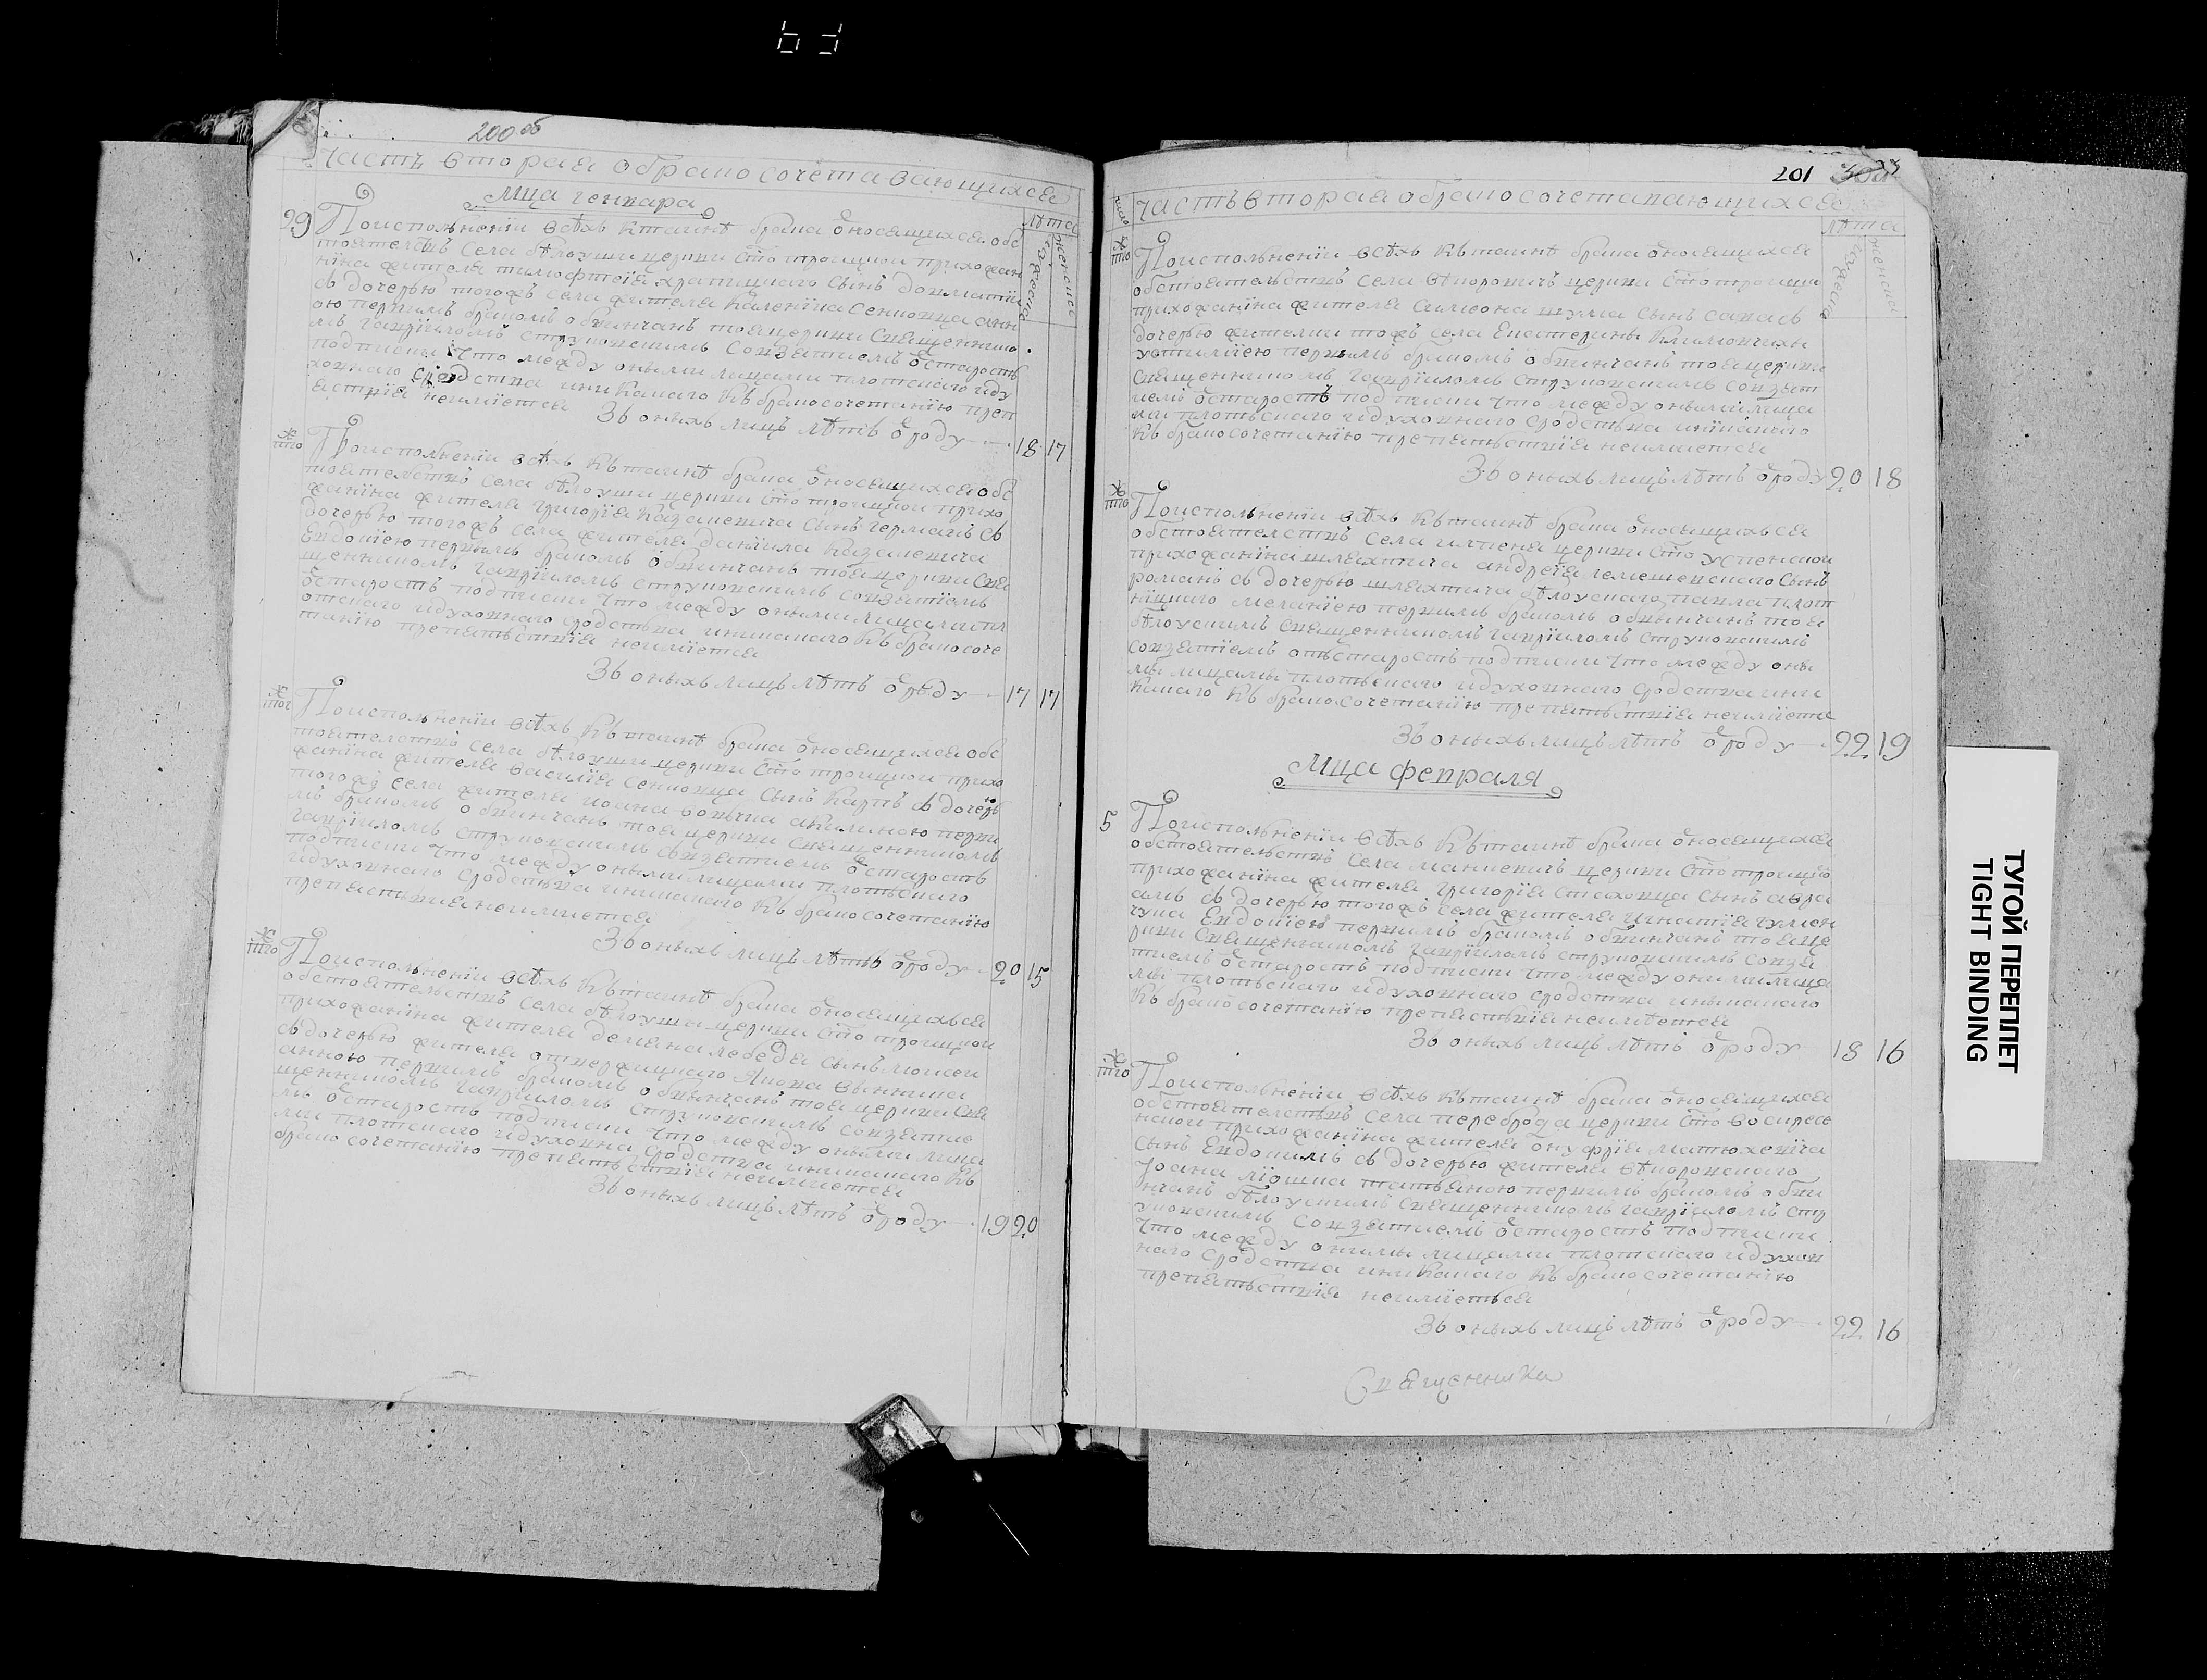 200 об
часть вторая о бракосочетавающихся
Мца генвара
лѣта
29 По исполненіи всѣхъ к таинѣ брака относящихся обс
тоятелствъ села бѣлоуши церкви Сто троицкои прихожан
нина жителя тимофтеія
съ дочерью тогожъ села жителя Каленика Сенковца анн
ою первымъ бракомъ обвинчанъ тоя церкви Священнико
мъ гавріиломъ струковскимъ со взятиемъ от старостъ
подписки что между оными лицами плотского и ду
ховнаго сродства и никакого къ бракосочетанію преп
ятствія неимѣется
Зъ оныхъ лицъ лѣтъ от роду 18 17
тго По исполненіи всѣхъ къ таинѣ брака относящихся обс
тоятельствъ села бѣлоуши церкви Сто троицкои прихо
жанина жителя григорія Казакевича сынъ германъ съ
дочерью тогожъ села жителя даніила Казакевича
Евдокіею первымъ бракомъ обвинчанъ тоя церкви Свя
щенникомъ гавріиломъ струковскимъ со взятіемъ
от старостъ подписки что между оными лицами пл
отского и духовнаго сродства и никакого къ бракосоче
танію препятствія неимѣется
Зъ оныхъ лицъ лѣтъ от роду 17 17
тог По исполненіи всѣхъ къ таинѣ брака относящихся обс
тоятелствъ села бѣлоуши церкви Сто троицкои прихо
жанина жителя василія Сенковца сынъ Карпъ съ дочерю
тогожъ села жителя иоана акилиною первы
мъ бракомъ обвинчанъ тоя церкви священникомъ
гавріиломъ струковскимъ со взятиемъ от старостъ
подписки что между оными лицами плотьского
и духовнаго сродства и никакого къ бракосочетанію
препятствия неимиется
Зъ оныхъ лицъ лѣтъ от роду 20 15
тго По исполненіи всѣхъ къ таинѣ брака относящихься
обстоятельствъ села бѣлоуша церкви Сто троицкои
прихожанина жителя демяна лебедя сынъ моисеи
съ дочерью жителя Якова
анною первымъ бракомъ обвинчанъ тоя церкви Свя
щенникомъ гавріиломъ струковскимъ со взятие
мъ от старостъ подписки что между оными лица
ми плотского и духовна сродства и никакого къ
бракосочетанію препятьствія неимиется
Зъ оныхъ лицъ лѣтъ от роду 19 20
201
число
часть вторая о бракосочетавающихся
лѣта
тго По исполненіи всѣхъ къ таинѣ брака относящихся
обстоятельствъ села вѣторожъ церкви Сто троицки
прихожанина жителя Симеона шума сынъ сава съ
дочерью жителки тожъ села Екатерины
устиміею первымъ бракомъ обвинчанъ тоя церкви
священникомъ гавріиломъ струковскимъ со взят
иемъ от старостъ подписки что между оными лица
ми плотьского и духовнаго сродства и никакого
къ бракосочетанію препятьствія неимиется
Зъ оныхъ лицъ лѣтъ от роду 20 18
тго По исполненіи всѣхъ къ таинѣ брака относящихься
обстоятелствъ села церкви Сто успенской
прихожанина шляхтича андрея сынъ
романъ съ дочерью шляхтича бѣлоуского павла плот
ницкого меланиею первымъ бракомъ обвинчанъ тоя
бѣлоускимъ священникомъ гавріиломъ струковскимъ
со взятіемъ отъ старостъ подписки что между оны
мы лицамы плотьского и духовнаго сродства и ни
какого къ бракосочетанію препятьствія неимиетца
Зъ оныхъ лицъ лѣтъ от роду 22 19
Мца февраля
5 По исполненіи всѣхъ къ таинѣ брака относящихся
обстоятельствъ села церкви Сто троицко
прихожанина жителя григорія стаховца сынъ авра
амъ съ дочерью тогожъ села жителя игнатія гумен
чука Евдокіею первымъ бракомъ обвинчанъ тоя це
ркви священникомъ гавріиломъ струковскимъ со взя
тиемъ от старостъ подписки что между оними лица
мы плотьского и духовнаго сродства и ныкакого
къ бракосочетанію препятствія неимѣется
Зъ оныхъ лицъ лѣтъ от роду 18 16
тго По исполненіи всѣхъ къ таинѣ брака относящихся
обстоятелствъ села переброда церкви Сто воскресе
нской прихожанина жителя онуфрія матюхевича
сынъ Евдокимъ съ дочерью жителя
Іоана татьяною первымъ бракомъ обви
нчанъ бѣлоускимъ священникомъ гавріиломъ стр
уковскимъ со взятиемъ от старостъ подписки
что между онимы лицами плотского и духов
наго сродства и никакого къ бракосочетанію
препятьствія неимиеться
Зъ оныхъ лицъ лѣтъ от роду 22 16
Священника
ТУГОЙ ПЕРЕПЛЕТ
TIGHT BINDING